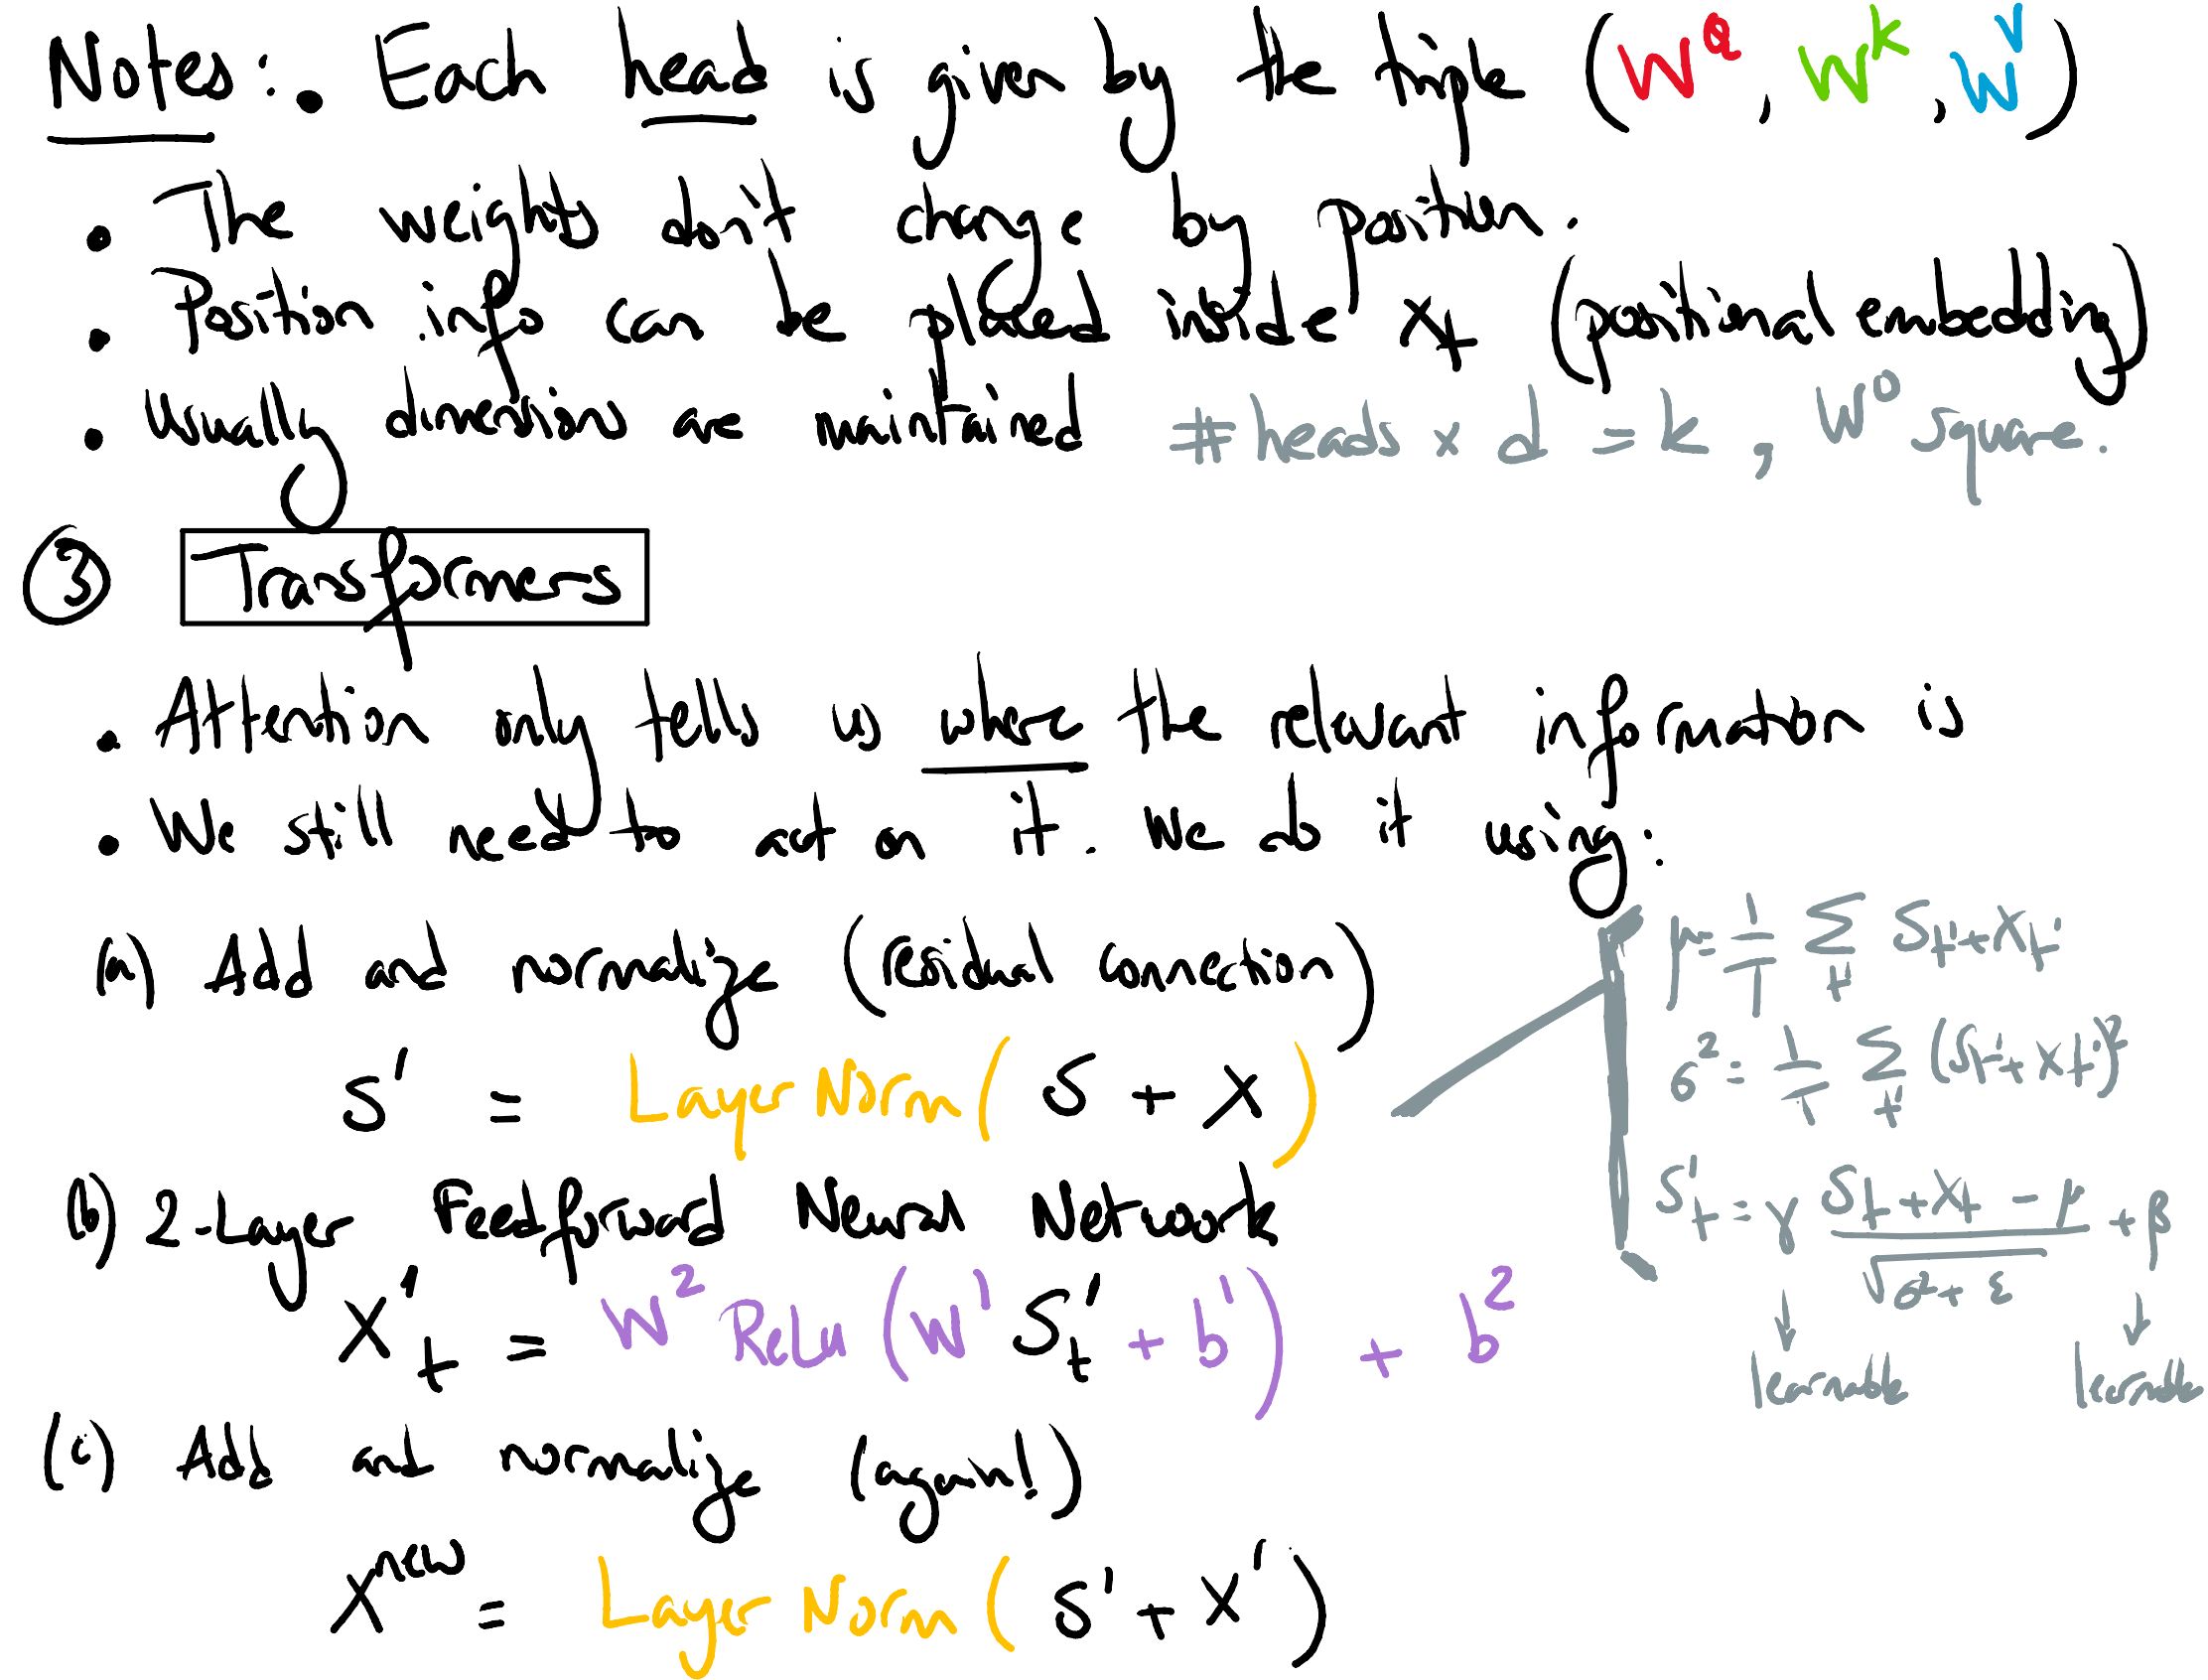 Notes: • Each head is given by the triple (W^Q, W^K, W^V)
• The weights don't change by position.
• Position info can be placed inside x_t (positional embedding)
• Usually dimensions are maintained # heads × d = k, W^O square.
③ Transformers
• Attention only tells us where the relevant information is
• We still need to act on it. We do it using:
(a) Add and normalize (residual connection)
S' = LayerNorm(S + X)
μ = 1/T Σ_t' S_t' + X_t'
σ² = 1/T Σ_t' (S_t' + X_t')²
S'_t = γ (S_t + X_t - μ)/√(σ² + ε) + β
↓ learnable ↓ learnable
(b) 2-Layer Feedforward Neural Network
X'_t = W² ReLu (W¹ S'_t + b¹) + b²
(c) Add and normalize (again!)
X^new = LayerNorm (S' + X')